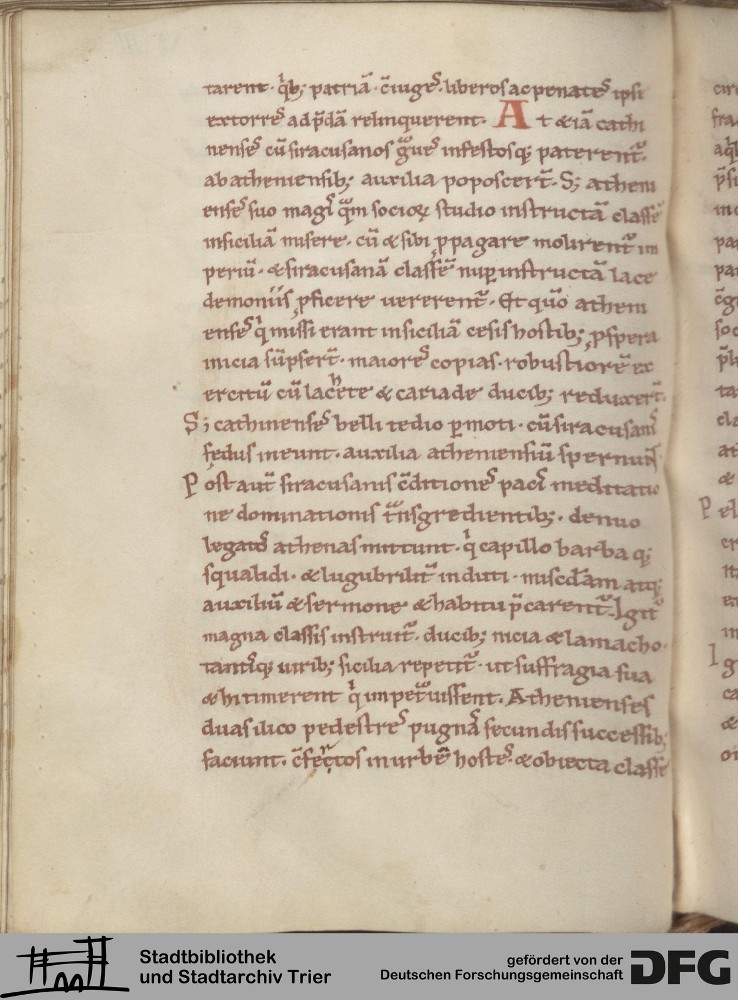 tarent. q̇b; patriā. c̄iuges. liberos ac penates ipsi
extorres ad p̄dā relinquerent. At & iā cathi
nenses cū siracusanos g̃ues infestosq; paterent̃.
ab atheniensib; auxilia poposcer̃t. S; atheni
enses suo magis q̃m socioꝝ studio instructā classē
in siciliā misere. cū & sibi ꝓpagare molirent̃ im
periū. & siracusanā classē nup̱ instructā lace
demoniis ꝓficere uererent̃. Et qūo atheni
enses q̇ missi erant in siciliā cesis hostib; ꝓspera
inicia sūpser̃t. maiores copias. robustiorē ex
ercitū cū lachete & cariade ducib; reduxer̃t.
S; cathinenses belli tedio ꝑmoti. cū siracusanis
fedus ineunt. auxilia atheniensiū spernunt.
Post aut̃ siracusanis c̄ditiones pacis meditatio
ne dominationis t̃nsgredientib;. denuo
legatos athenas mittunt. q̇ capillo barba q;
squalidi. & lugubrilit̃ induti. misc̄dam atq;
auxiliū & sermone & habitu p̄carent̃. Igit̃
magna classis instruit̃. ducib; nicia & lamacho.
tantisq; uirib; sicilia repetit̃. ut suffragia sua
& hi timerent q̇ impet̃uissent. Athenienses
duas ilico pedestres pugnas secundis successib;
faciunt. c̄fertos in urbē hostes. & obiecta classe
Stadtbibliothek
und Stadtarchiv Trier
gefördert von der
Deutschen Forschungsgemeinschaft
DFG